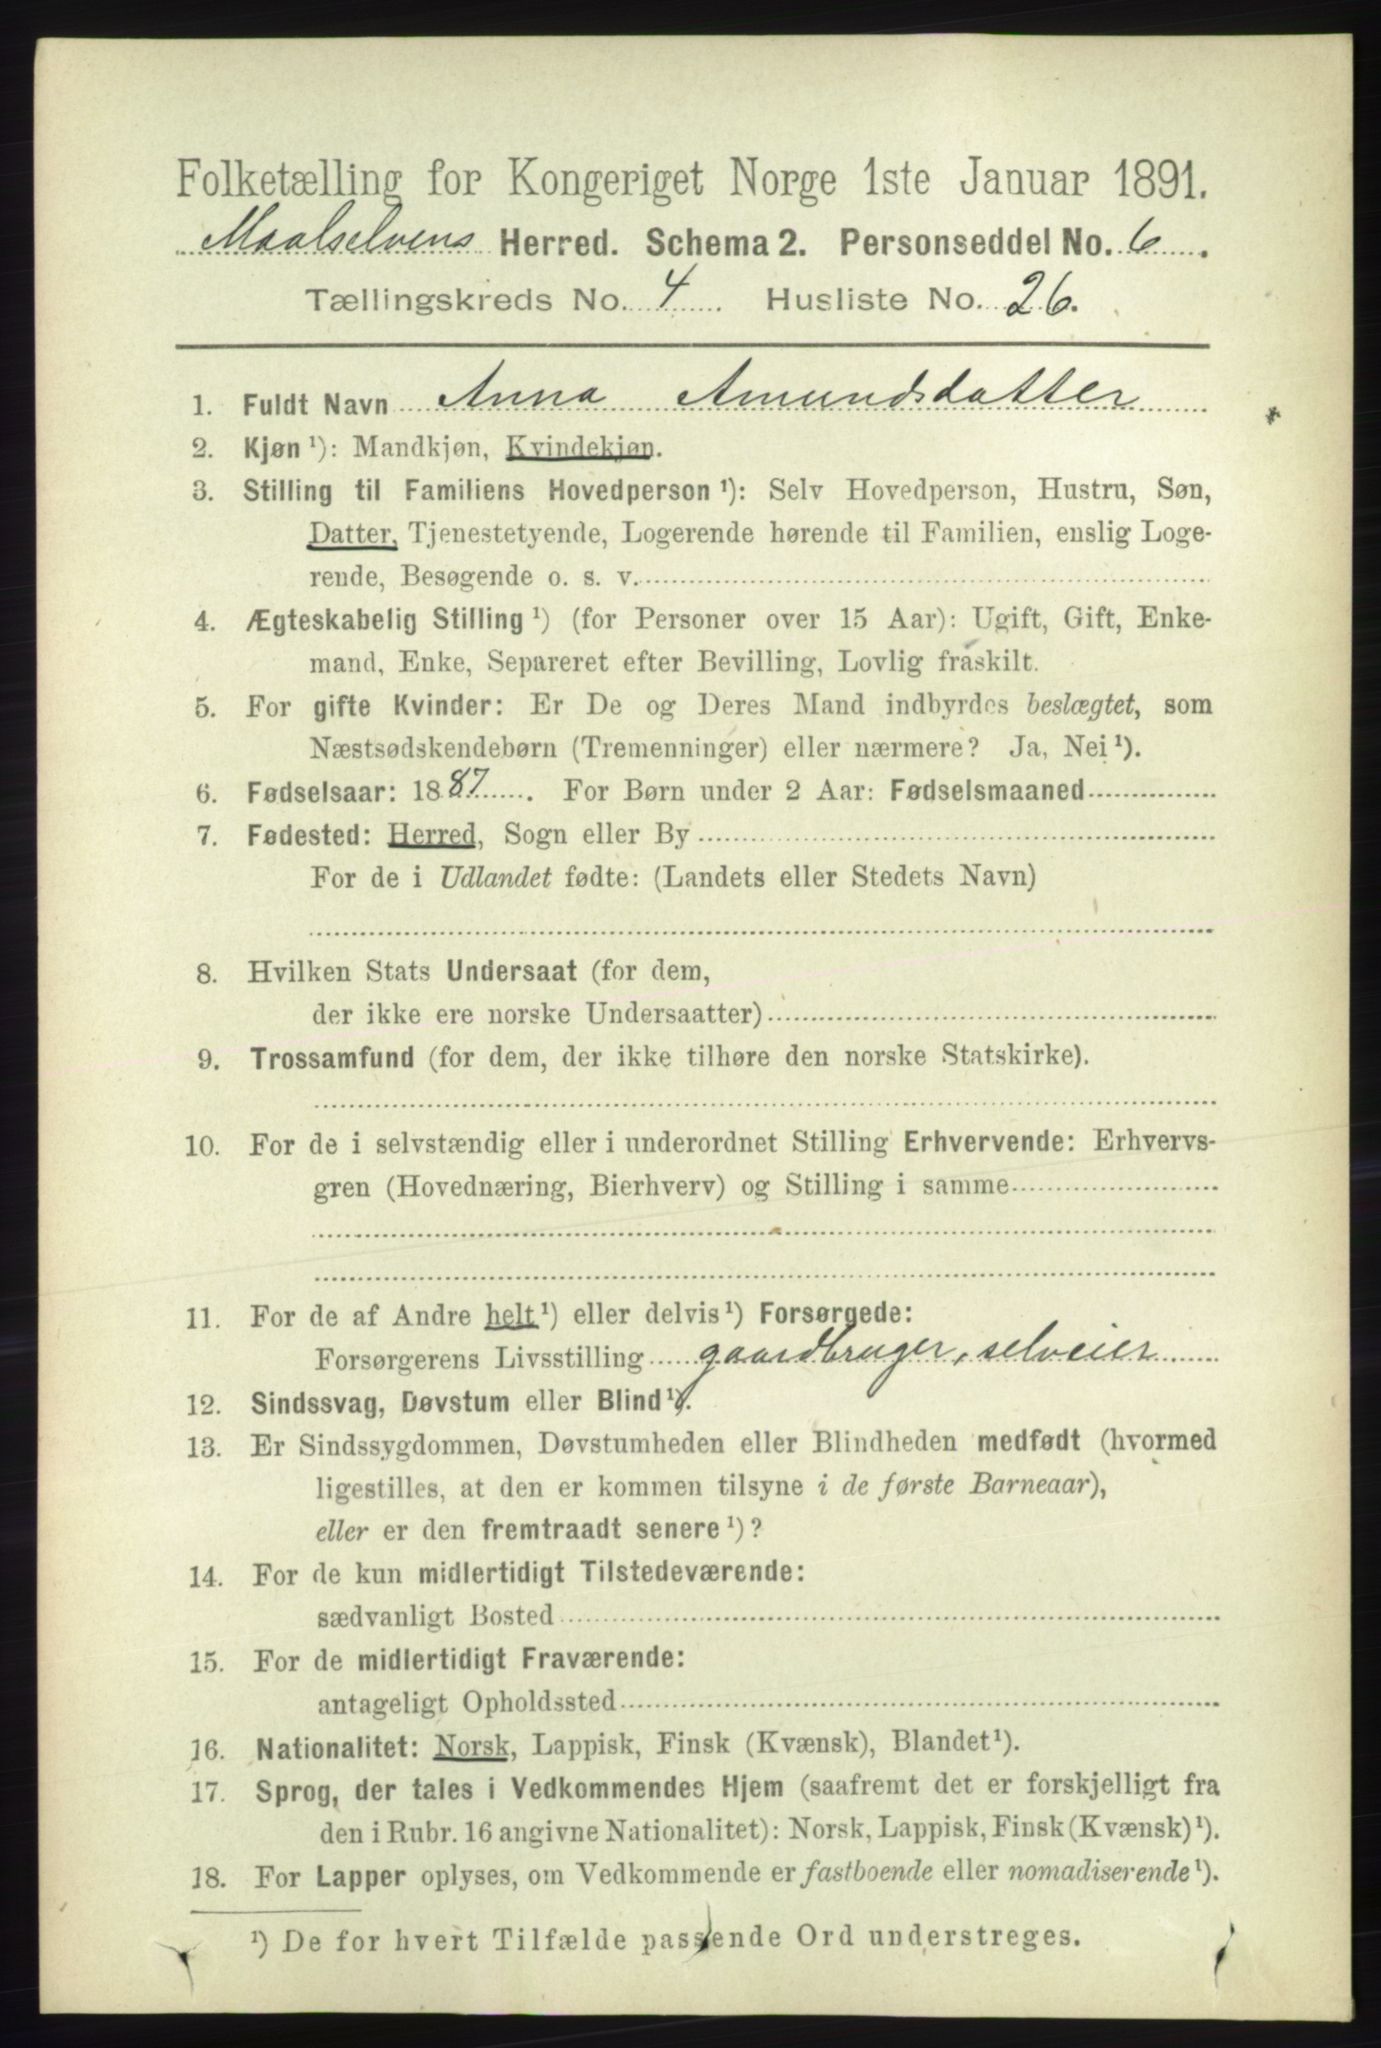 Folketælling for Kongeriget Norge 1ste Januar 1891.
Maalselvens Herred. Schema 2. Personseddel No. 6.
Tællingskreds No. 4 Husliste No. 26.
1. Fuldt Navn Anna Amundsdatter
2. Kjøn ¹): Mandkjøn, Kvindekjøn.
3. Stilling til Familiens Hovedperson ¹): Selv Hovedperson, Hustru, Søn,
Datter, Tjenestetyende, Logerende hørende til Familien, enslig Loge-
rende, Besøgende o. s. v.
4. Ægteskabelig Stilling ¹) (for Personer over 15 Aar): Ugift, Gift, Enke-
mand, Enke, Separeret efter Bevilling, Lovlig fraskilt.
5. For gifte Kvinder: Er De og Deres Mand indbyrdes beslægtet, som
Næstsødskendebørn (Tremenninger) eller nærmere? Ja, Nei ¹).
6. Fødselsaar: 1887. For Børn under 2 Aar: Fødselsmaaned
7. Fødested: Herred, Sogn eller By
For de i Udlandet fødte: (Landets eller Stedets Navn)
8. Hvilken Stats Undersaat (for dem,
der ikke ere norske Undersaatter)
9. Trossamfund (for dem, der ikke tilhøre den norske Statskirke).
10. For de i selvstændig eller i underordnet Stilling Erhvervende: Erhvervs-
gren (Hovednæring, Bierhverv) og Stilling i samme
11. For de af Andre helt ¹) eller delvis ¹) Forsørgede:
Forsørgerens Livsstilling gaardbruger, selveier
12. Sindssvag, Døvstum eller Blind ¹).
13. Er Sindssygdommen, Døvstumheden eller Blindheden medfødt (hvormed
ligestilles, at den er kommen tilsyne i de første Barneaar),
eller er den fremtraadt senere ¹)?
14. For de kun midlertidigt Tilstedeværende:
sædvanligt Bosted
15. For de midlertidigt Fraværende:
antageligt Opholdssted
16. Nationalitet: Norsk, Lappisk, Finsk (Kvænsk), Blandet ¹).
17. Sprog, der tales i Vedkommendes Hjem (saafremt det er forskjelligt fra
den i Rubr. 16 angivne Nationalitet): Norsk, Lappisk, Finsk (Kvænsk) ¹).
18. For Lapper oplyses, om Vedkommende er fastboende eller nomadiserende ¹).
¹) De for hvert Tilfælde passende Ord understreges.